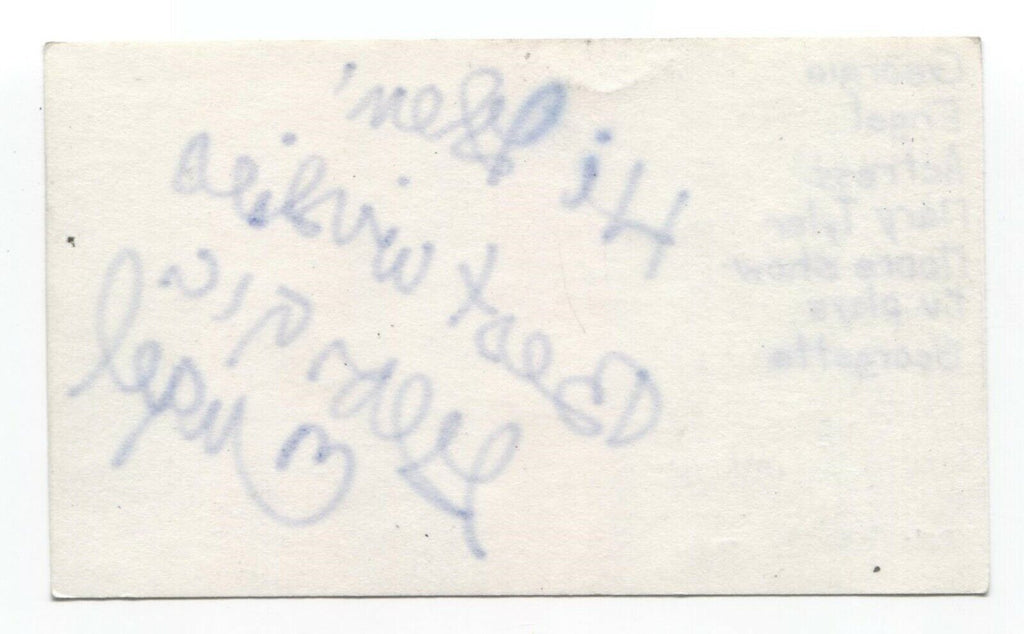 Hi
Best wishes
Georgia
Engel
Georgia
Engel
Actress
Mary Tyler
Moore show
tv plays
Georgette